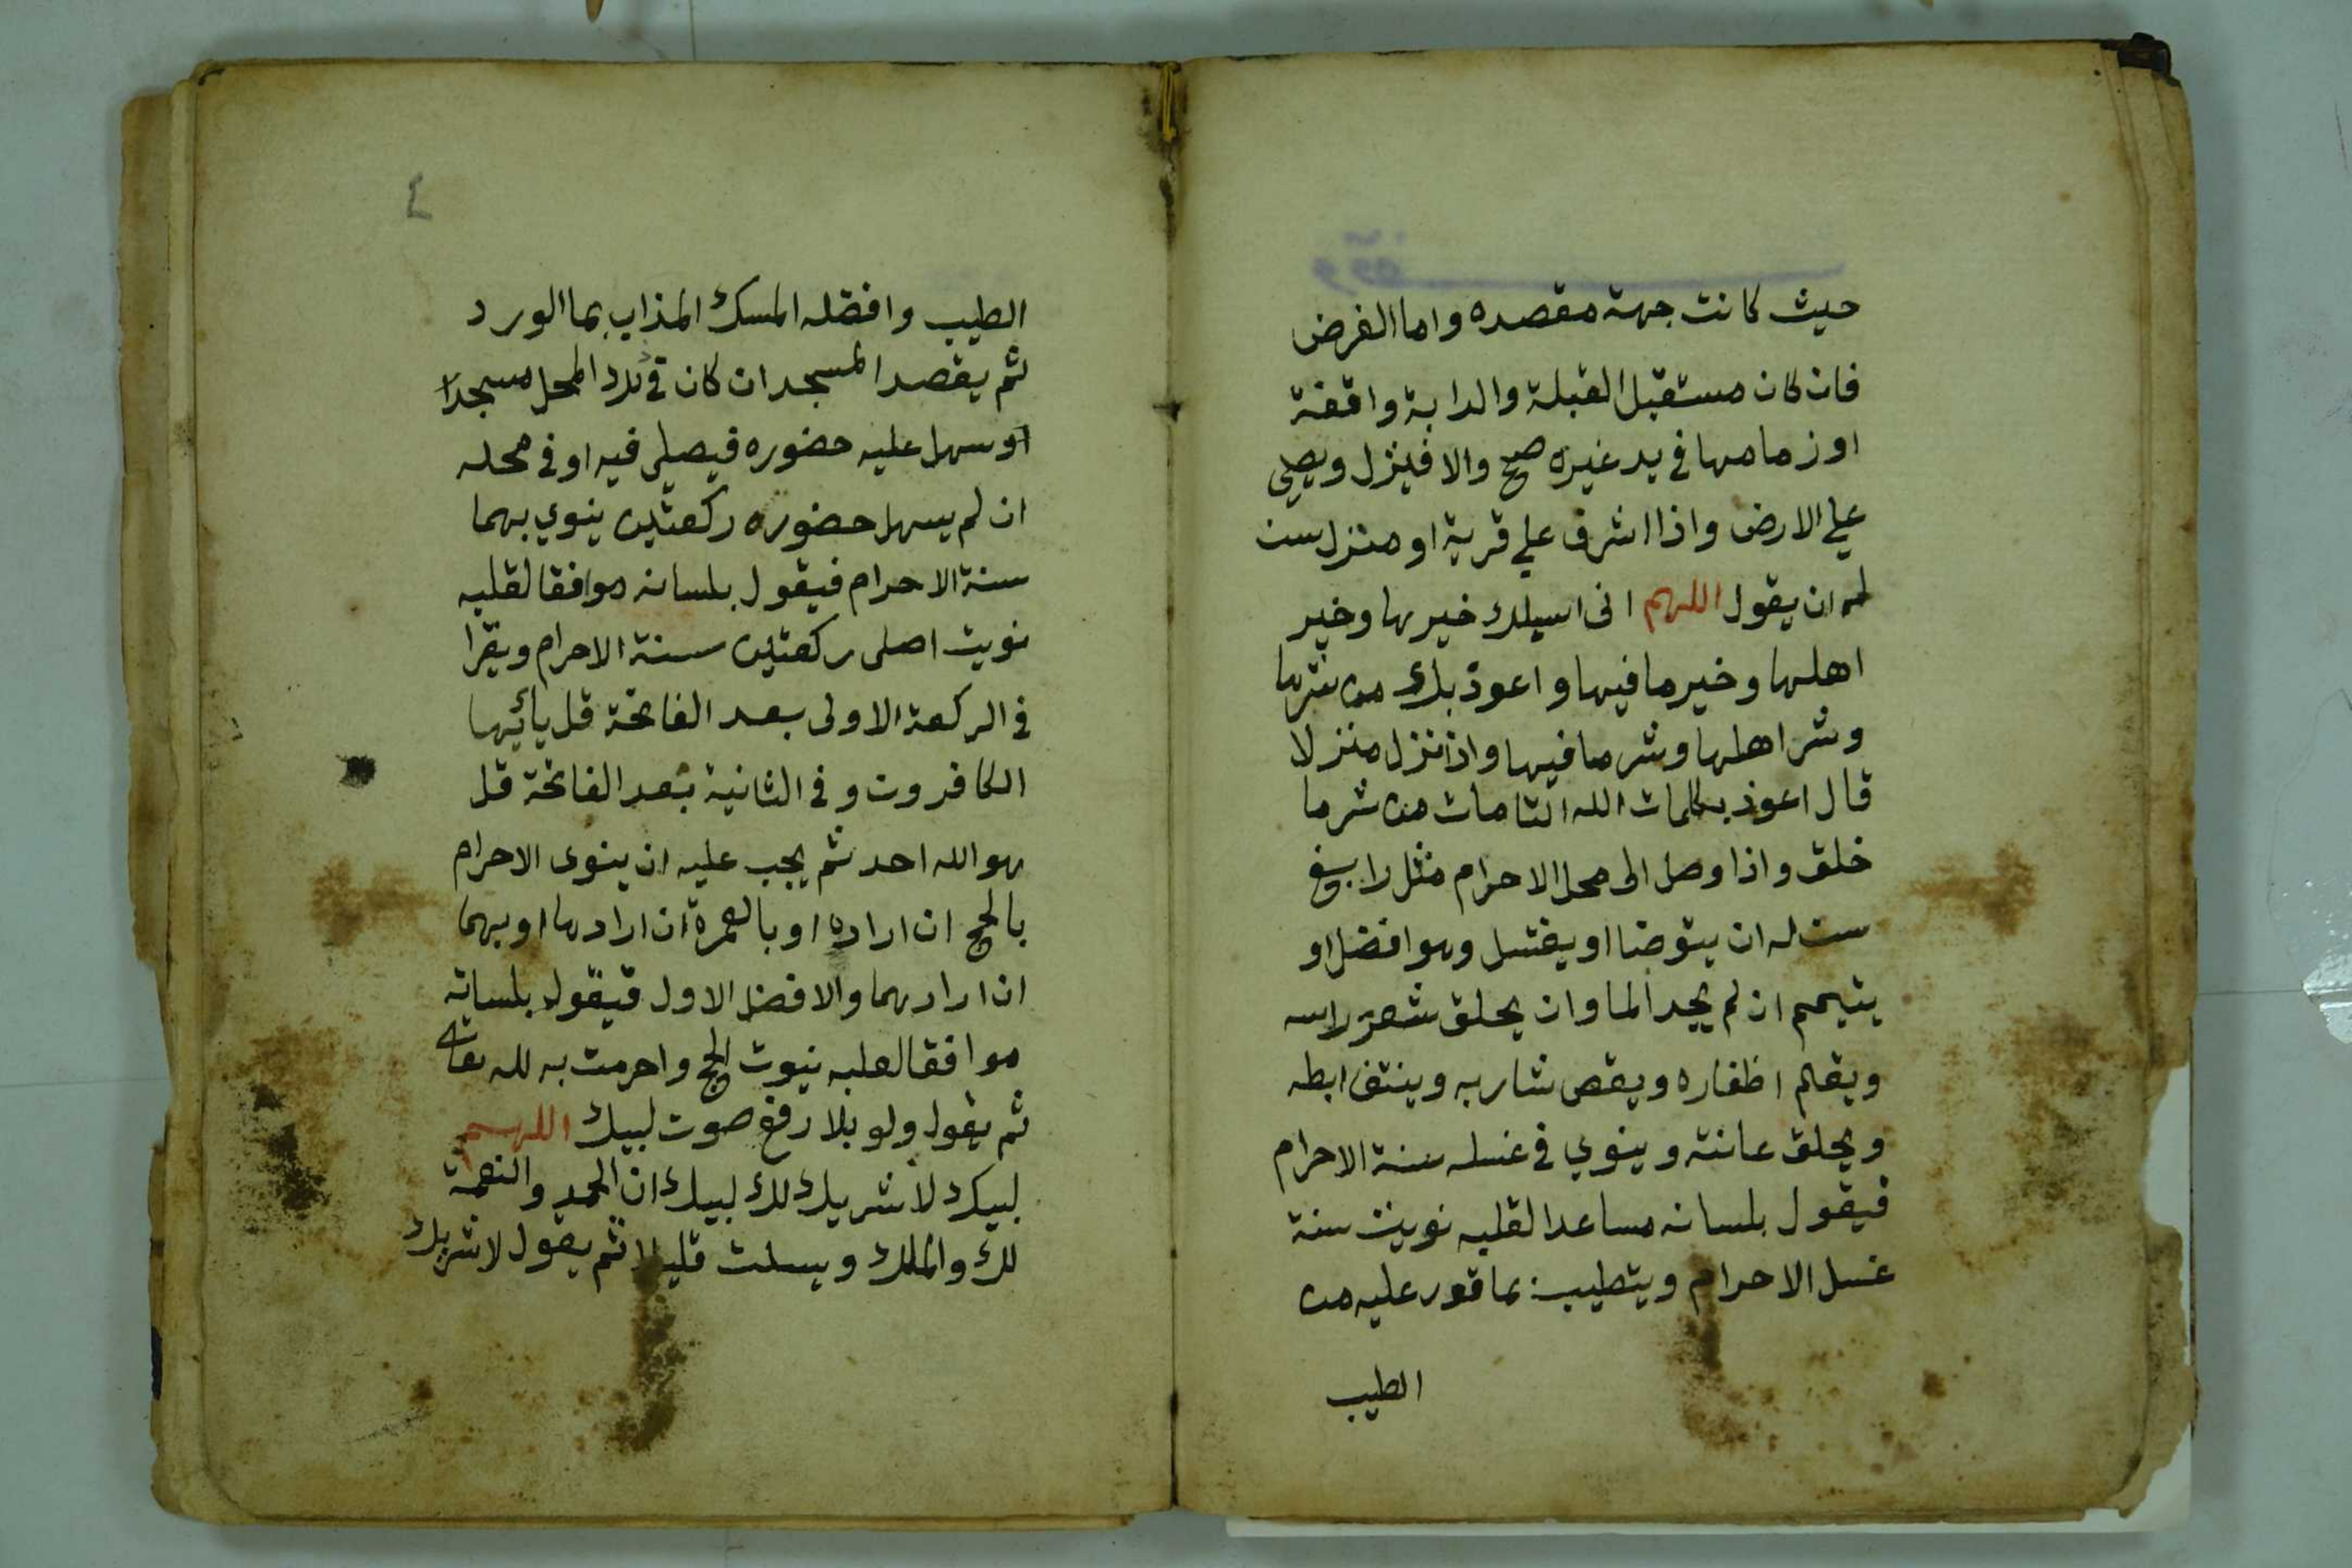 وقف
حيث كانت جهة مقصده واما الفرض
فان كان مستقبل القبلة والدابة واقفة
او زمامها في يد غيره صح والا فينزل ويصلي
علي الارض واذا اشرف علي قرية او منزل سن
له ان يقول اللهم انى اسيلك خيرها وخير
اهلها وخير ما فيها واعوذ بك من شرها
وشر اهلها وشر ما فيها واذا نزل منزلا
قال اعوذ بكلمات الله التامات من شر ما
خلق واذا وصل الى محل الاحرام مثل رابغ
سن له ان يتوضا او يغتسل وهو افضل او
يتيمم ان لم يجد الما وان يحلق شعر راسه
ويقلم اظفاره ويقص شاربه وينتف ابطه
ويحلق عانته وينوي في غسله سنة الاحرام
فيقول بلسانه مساعدا لقلبه نويت سنة
غسل الاحرام ويتطيب بما قدر عليه من
الطيب
٤
الطيب وافضله المسك المذاب بما الورد
ثم يقصد المسجد ان كان في ذلك المحل مسجدا
او سهل عليه حضوره فيصلي فيه او في محله
ان لم يسهل حضوره ركعتين ينوي بهما
سنة الاحرام فيقول بلسانه موافقا لقلبه
نويت اصلى ركعتين سنة الاحرام ويقرا
في الركعة الاولى بعد الفاتحة قل يائيها
الكافرون وفي الثانية بعد الفاتحة قل
هو الله احد ثم يجب عليه ان ينوى الاحرام
بالحج ان اراده او بالعمرة ان ارادها او بهما
ان ارادهما والافضل الاول فيقول بلسانه
موافقا لقلبه نويت الحج واحرمت به لله تعالى
ثم يقول ولو بلا رفع صوت لبيك اللهم
لبيك لا شريك لك لبيك ان الحمد والنعمة
لك والملك ويسكت قليلا ثم يقول لا شريك